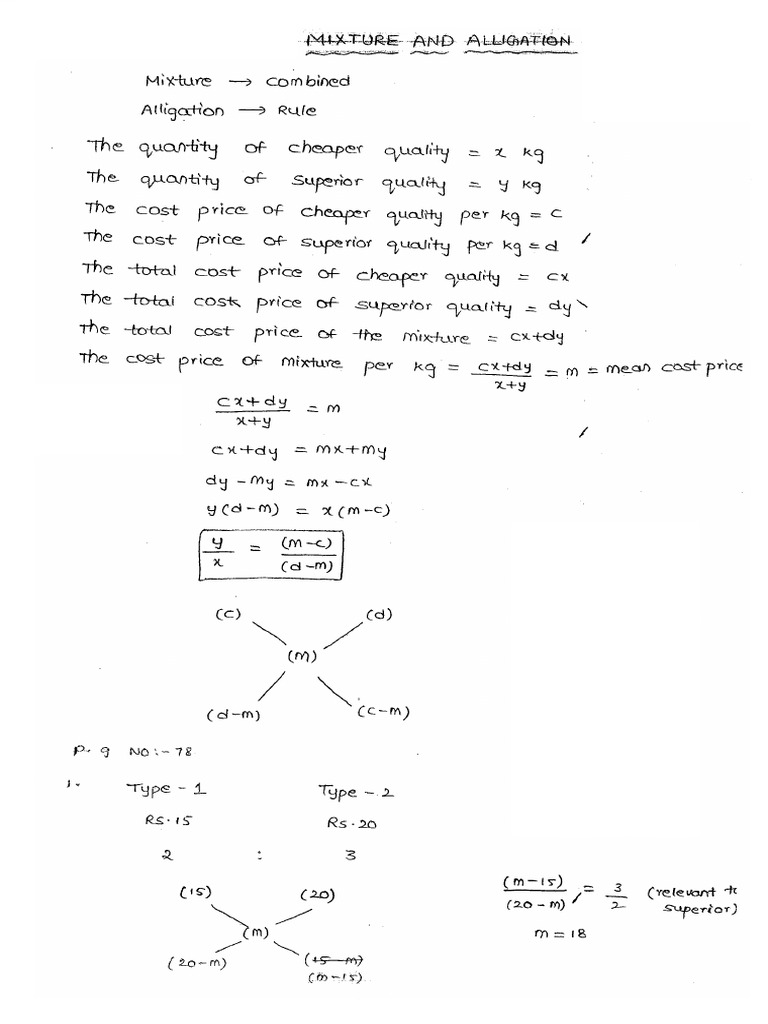 MIXTURE AND ALLIGATION
Mixture → combined
Alligation → Rule
The quantity of cheaper quality = x kg
The quantity of superior quality = y kg
The cost price of cheaper quality per kg = c
The cost price of superior quality per kg = d
The total cost price of cheaper quality = cx
The total cost price of superior quality = dy
The total cost price of the mixture = cx+dy
The cost price of mixture per kg = cx+dy / x+y = m = mean cost price
cx+dy / x+y = m
cx+dy = mx+my
dy-my = mx-cx
y(d-m) = x(m-c)
y / x = (m-c) / (d-m)
(c) (d)
(m)
(d-m) (c-m)
P.g NO:-78
1. Type-1 Type-2
Rs.15 Rs.20
2 : 3
(15) (20)
(m)
(20-m) (15-m)
(m-15)
(m-15) / (20-m) = 3 / 2 (relevant to
superior)
m=18